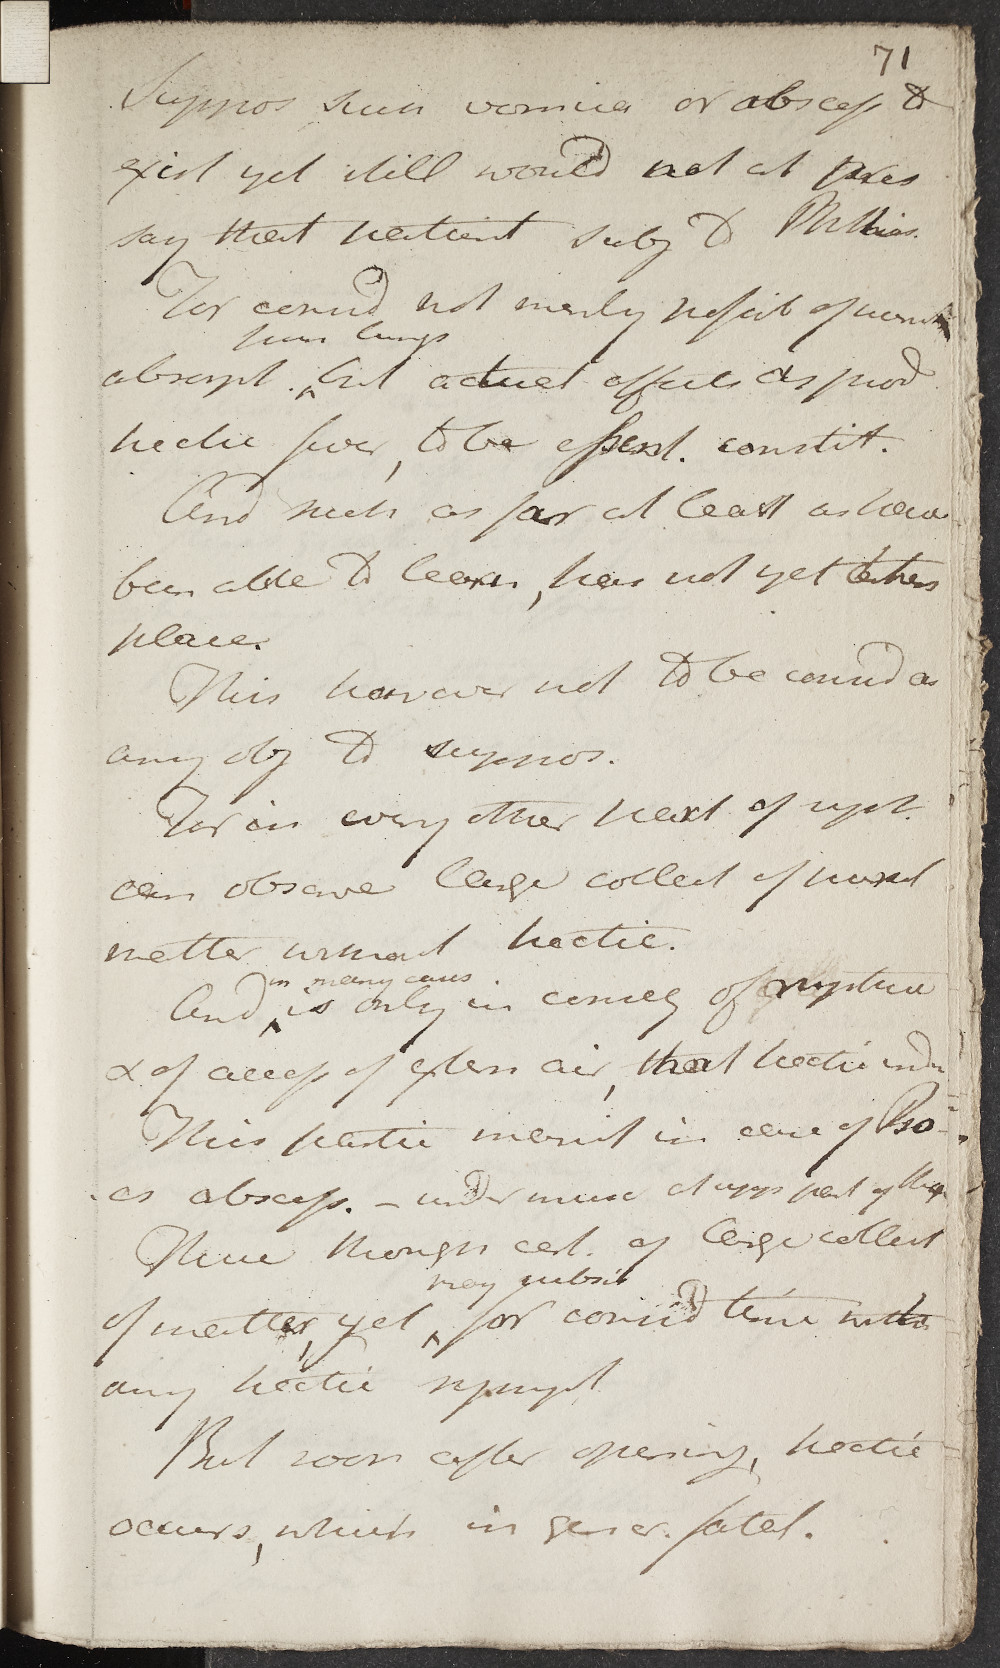 71
Suppos such vomica or abscess to
exist yet still would not at pres
say that patient subj to Phthisis.
For consid not merely deposit of
from lungs
absorpt. but actual effects as prod
hectic fever, to be essent. constit.
And such as far at least as have
been able to learn, has not yet taken
place.
This however not to be considd as
any obj to suppos.
For in every other part of syst.
can observe large collect of purul
matter without hectic.
in many cases
And is only in conseq of rupture
& of access of extern air, that hectic
This partic in case of Pso-
as abscess. – under muse at upper part of thigh
There though cert. of large collect
may subsist
of matter, yet for considd time witht
any hectic sympt.
But soon after opening, hectic
occurs, which in gener. fatal.